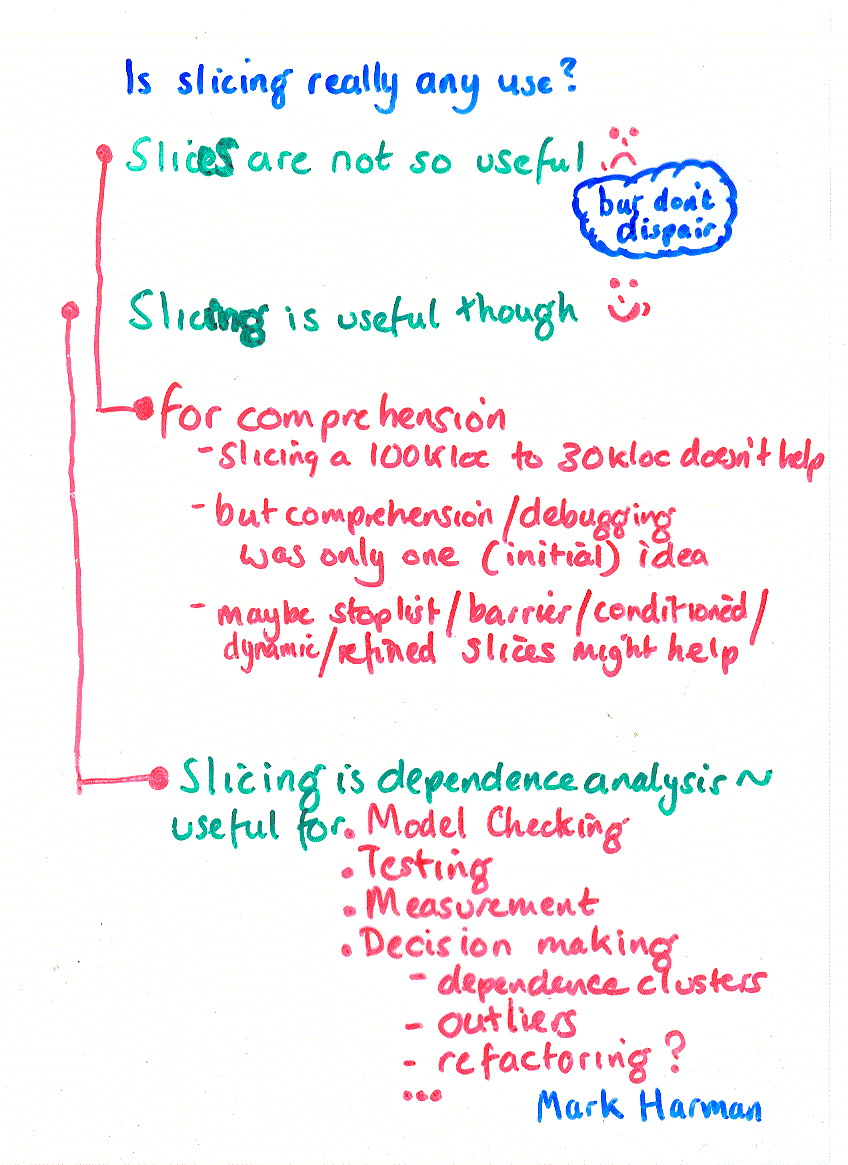 Is slicing really any use?
Slices are not so useful
but don't
dispair
Slicing is useful though
for comprehension
- slicing a 100Kloc to 30kloc doesn't help
- but comprehension/debugging
was only one (initial) idea
- maybe stoplist/barrier/conditioned/
dynamic/refined slices might help
Slicing is dependence analysis ~
useful for. Model Checking
. Testing
. Measurement
. Decision making
- dependence clusters
- outliers
- refactoring?
...
Mark Harman